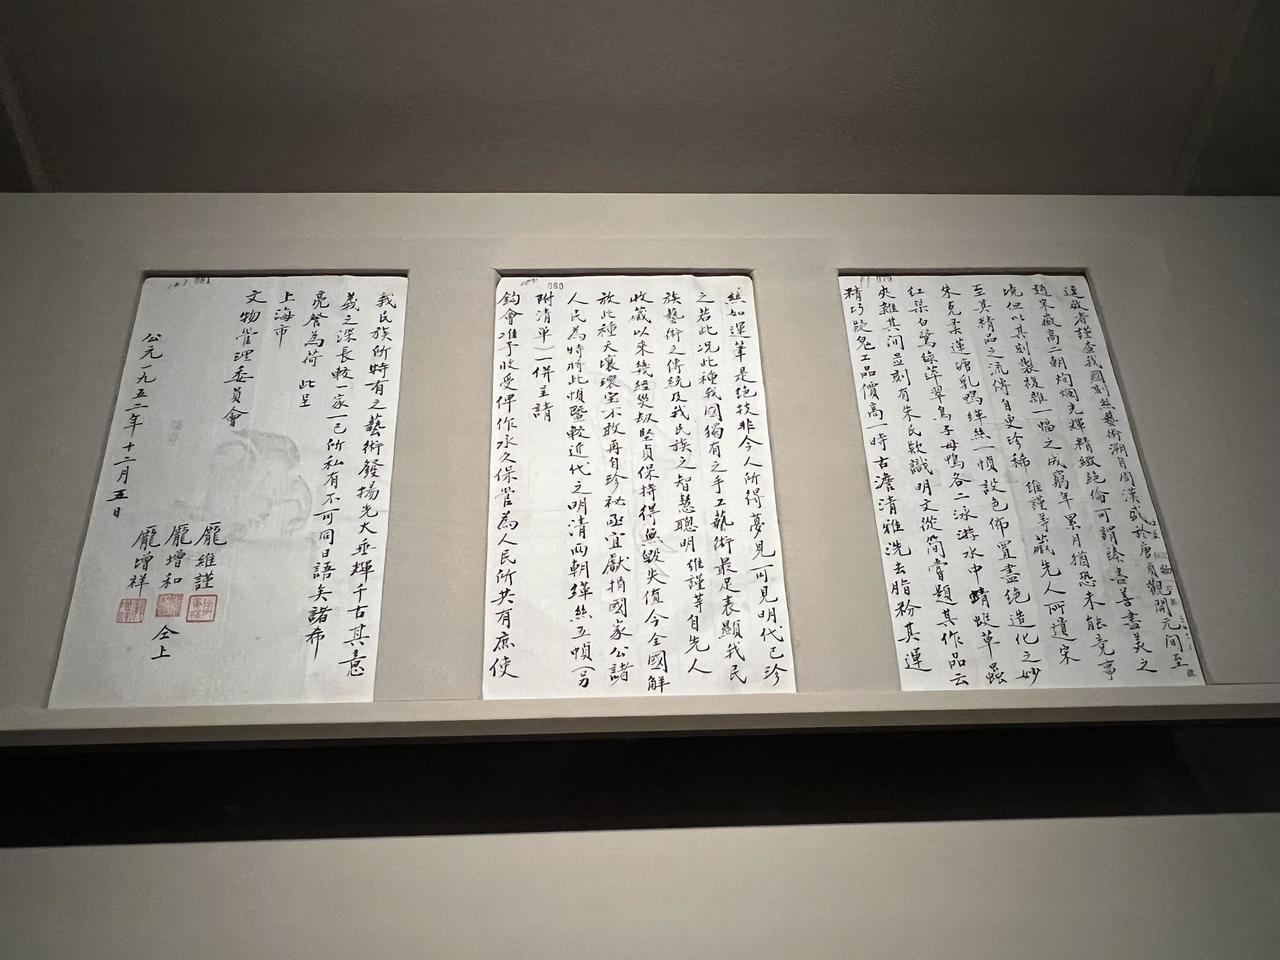 079
逕啟者謹查我國刻絲藝術溯自周漢盛於唐貞觀開元間至
趙宋徽高二朝炳爛光輝精緻絕倫可謂臻善盡美之
境但以其刻製複雜一幅之成窮年累月猶恐未能竟事
至其精品之流傳自更珍稀 維謹等藏先人所遺宋
朱克柔蓮塘乳鴨緙絲一幀設色佈置盡絕造化之妙
紅渠白鷺綠萍翠鳥子母鴨各二泳游水中蜻蜓草蟲
夾雜其間並刻有朱氏欵識明文從簡嘗題其作品云
精巧疑鬼工品價高一時古澹清雅洗去脂粉其運
080
絲如運筆是絕技非今人所得夢見可見明代已珍
之若此况此種我國獨有之手工藝術最足表顯我民
族藝術之傳統及我民族之智慧聰明維謹等自先人
收藏以來幾經災劫堅貞保持得無毀失值今全國解
放此種天壤瓌宝不敢再自珍祕亟宜獻捐國家公諸
人民為特將此幀暨較近代之明清兩朝緙絲五幀(另
附清單)一併呈請
鈞會准予收受俾作永久保管為人民所共有庶使
081
我民族所特有之藝術發揚光大垂輝千古其意
義之深長較一家一己所私有不可同日語矣諸希
亮詧為荷 此呈
上海市
文物管理委員會
龐維謹
龐增和 仝上
龐增祥
公元一九五二年十二月五日